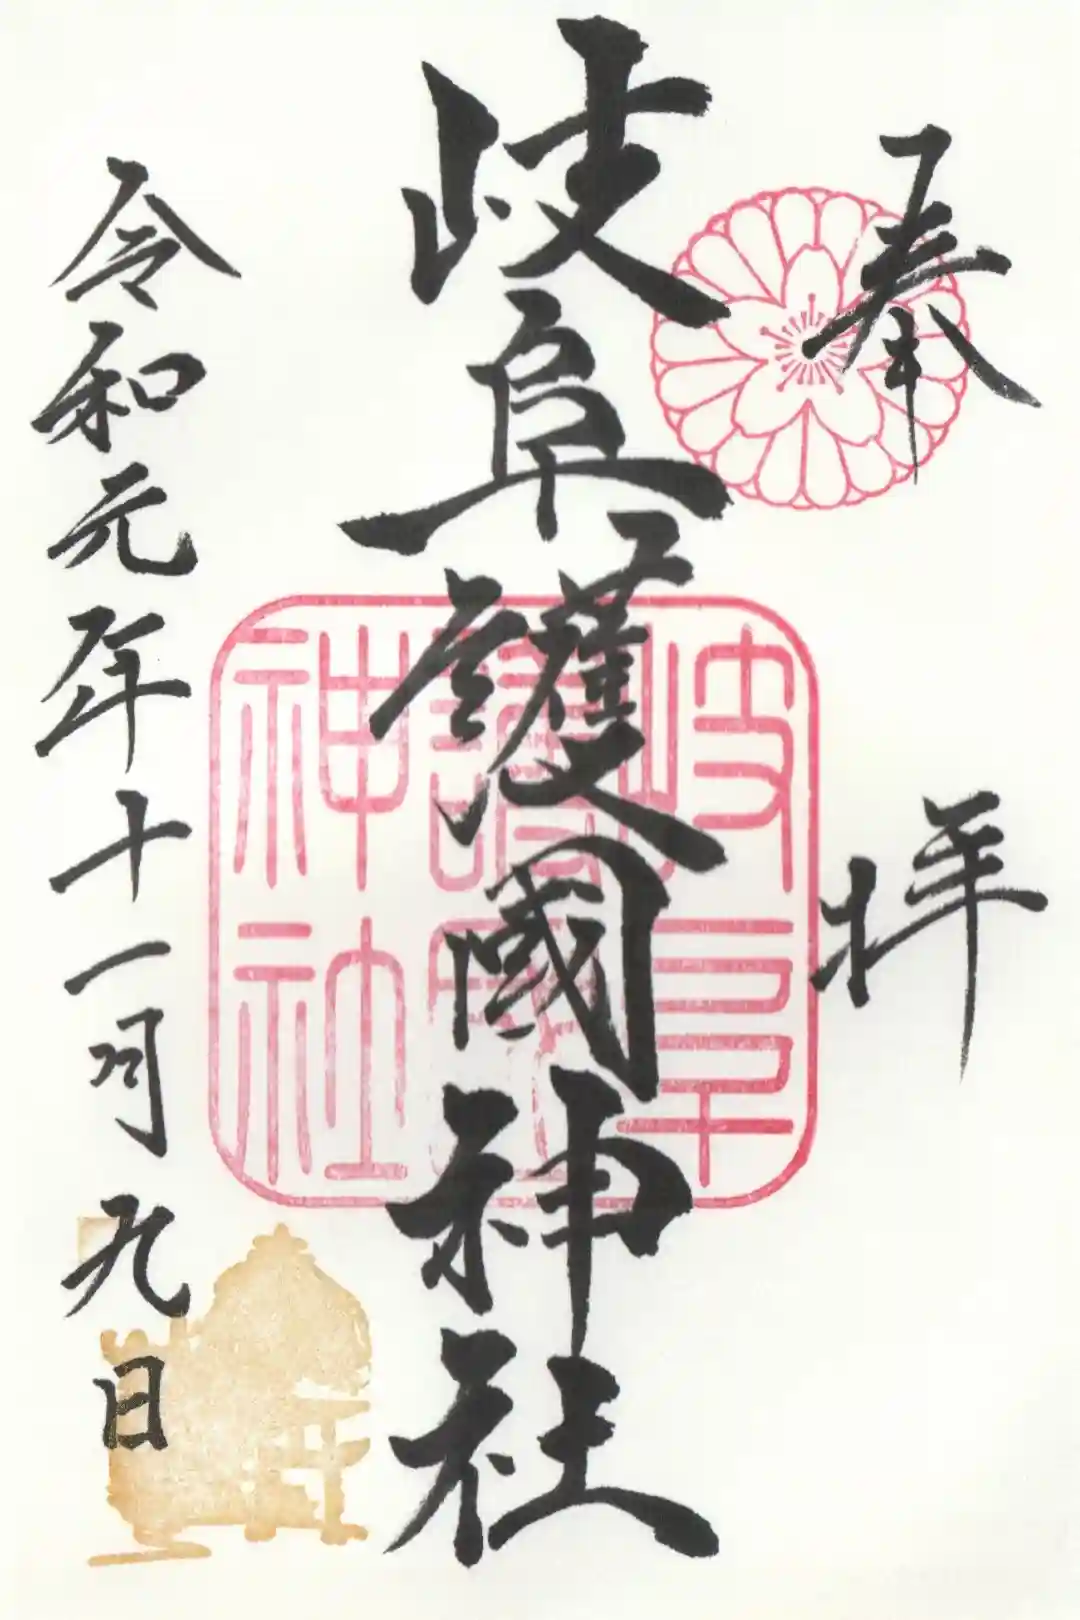 奉拝
岐阜護國神社
岐阜護國神社
令和元年十一月九日